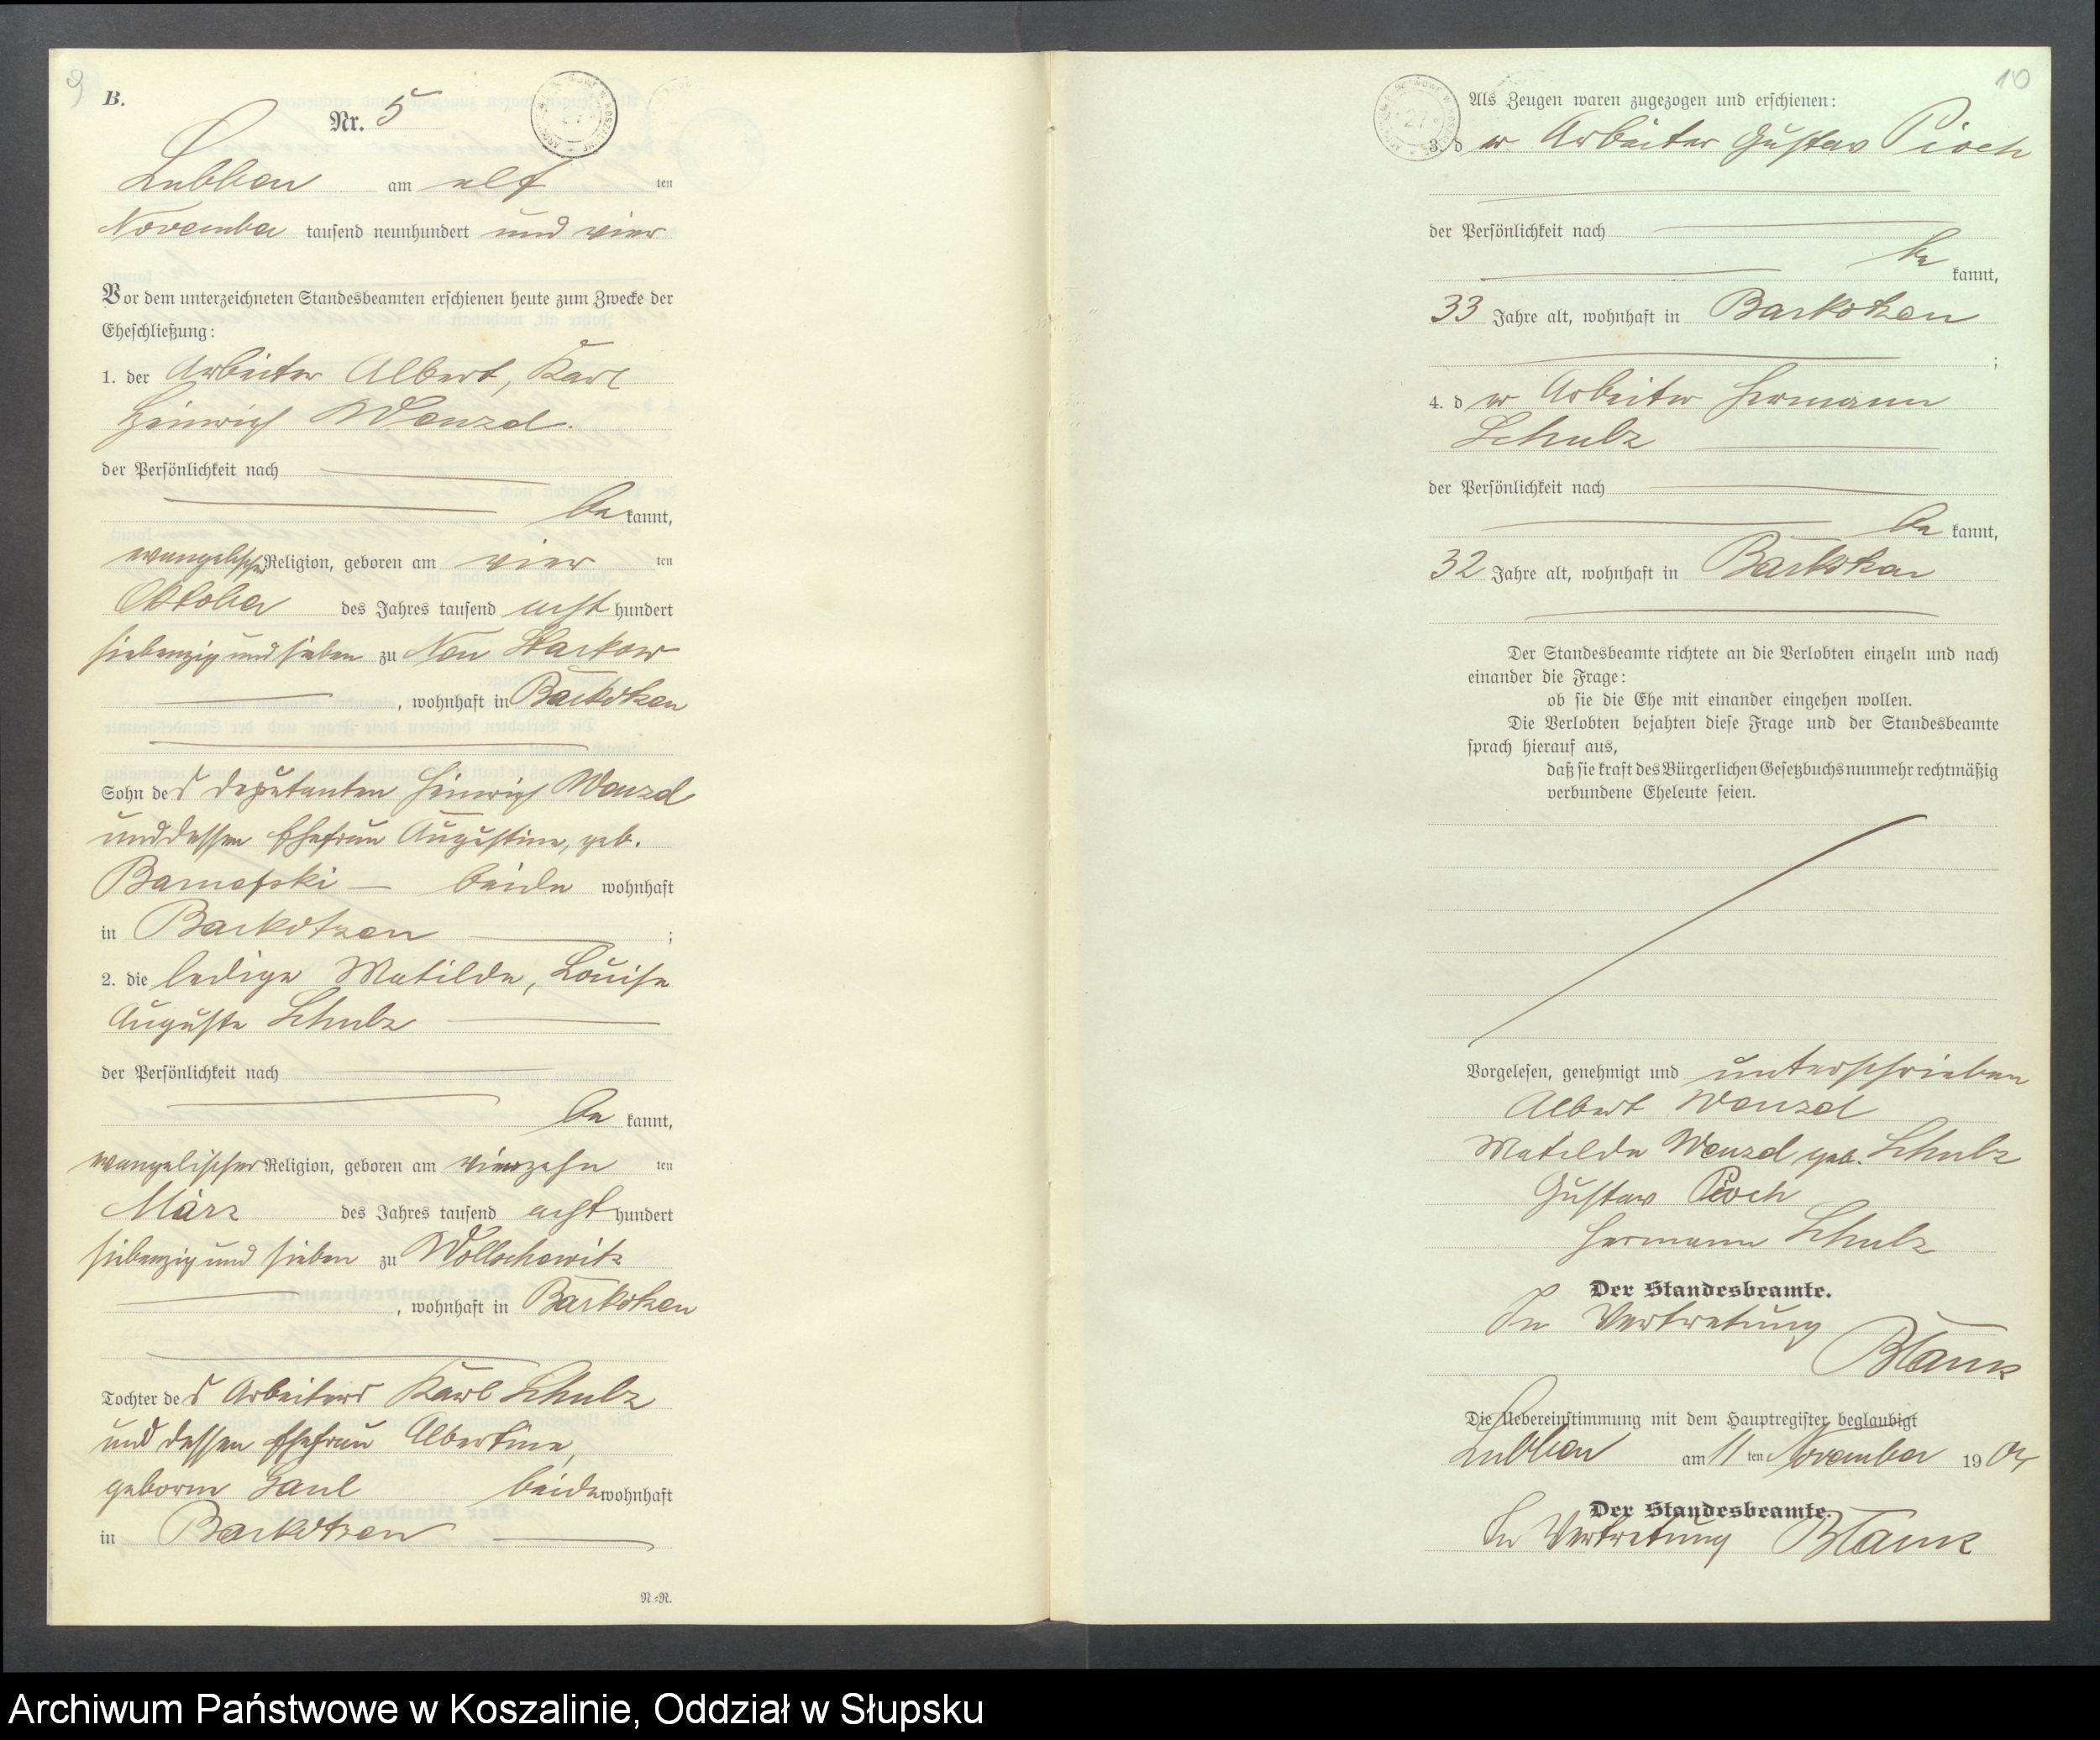 9
B.
Nr. 5
Lubben am elf ten
November tausend neunhundert und vier
Vor dem unterzeichneten Standesbeamten erschienen heute zum Zwecke der
Eheschließung:
1. der Arbeiter Albert, Karl
Heinrich Wenzel.
der Persönlichkeit nach
be kannt,
evangelischer Religion, geboren am vier ten
Oktober des Jahres tausend acht hundert
siebenzig und sieben zu Neu Starkow
, wohnhaft in Barkotzen
Sohn des Deputanten Heinrich Wenzel
und dessen Ehefrau Augustine, geb.
beide wohnhaft
in Barkotzen ;
2. die ledige Matilde, Louise
Auguste Schulz
der Persönlichkeit nach
be kannt,
evangelischer Religion, geboren am vierzehn ten
März des Jahres tausend acht hundert
siebenzig und sieben zu Wollschowitz
, wohnhaft in Barkotzen
Tochter des Arbeiters Karl Schulz
und dessen Ehefrau Albertine,
geborne Gaul beide wohnhaft
in Barkotzen
N.=R.
10
Als Zeugen waren zugezogen und erschienen:
3. der Arbeiter Gustav Pioch
der Persönlichkeit nach
be kannt,
33 Jahre alt, wohnhaft in Barkotzen
;
4. der Arbeiter Hermann
Schulz
der Persönlichkeit nach
be kannt,
32 Jahre alt, wohnhaft in Barkotzen
Der Standesbeamte richtete an die Verlobten einzeln und nach
einander die Frage:
ob sie die Ehe mit einander eingehen wollen.
Die Verlobten bejahten diese Frage und der Standesbeamte
sprach hierauf aus,
daß sie kraft des Bürgerlichen Gesetzbuchs nunmehr rechtmäßig
verbundene Eheleute seien.
Vorgelesen, genehmigt und unterschrieben
Albert Wenzel
Matilde Wenzel geb. Schulz
Gustav Pioch
Hermann Schulz
Der Standesbeamte.
In Vertretung
Blank
Die Uebereinstimmung mit dem Hauptregister beglaubigt
Lubben am 11 ten November 19 04
Der Standesbeamte.
In Vertretung Blank
Archiwum Państwowe w Koszalinie, Oddział w Słupsku